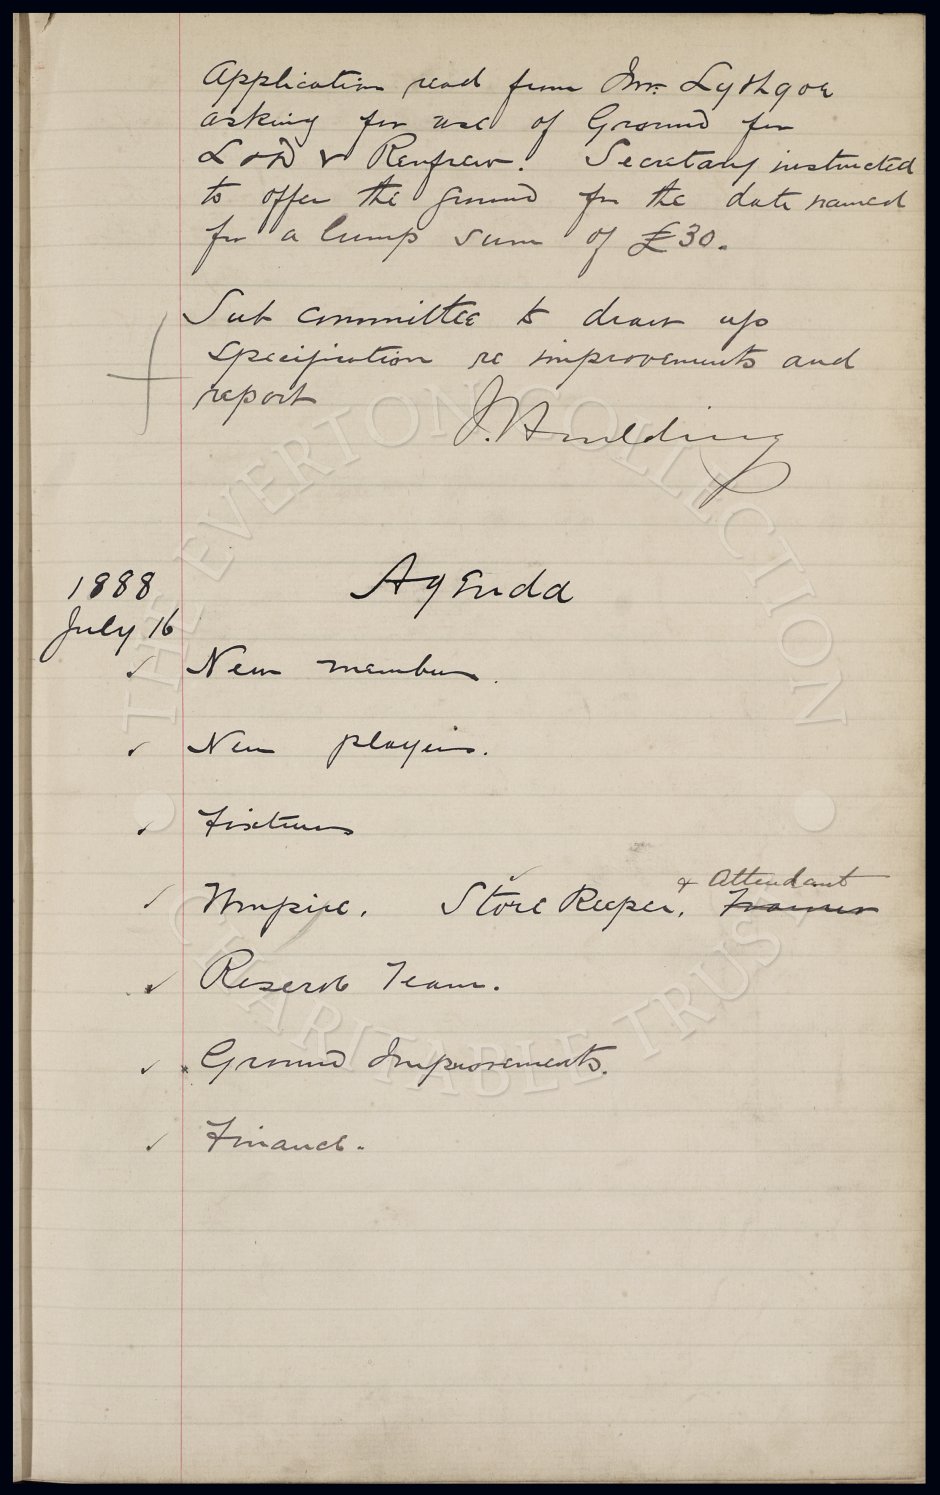 Application read from Mr. Lythgoe
asking for use of Ground for
L & D v Renfrew. Secretary instructed
to offer the ground for the date named
for a lump sum of £30.
Sub committee to draw up
specification re improvements and
report
J. Houlding
1888
Agenda
July 16
✓ New members.
✓ New players.
✓ Fixtures
& Attendant
✓ Umpire. ✓ Store Keeper, Trainer
✓ Reserve Team.
✓ Ground Improvements.
✓ Finance.
THE EVERTON COLLECTION
CHARITABLE TRUST